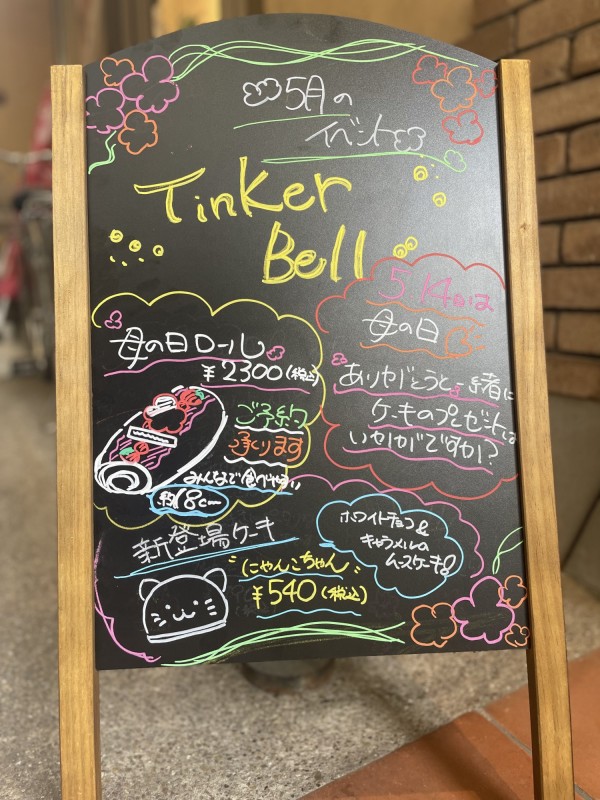 5月の
イベント
Tinker
Bell
5.14日は
母の日
ありがとうと一緒に
ケーキのプレゼントは
いかがですか?
母の日ロール
¥2300(税込)
ご予約
承ります
みんなで食べやすい
約18cm
新登場ケーキ
にゃんこちゃん
¥540(税込)
ホワイトチョコ&
キャラメルの
ムースケーキ